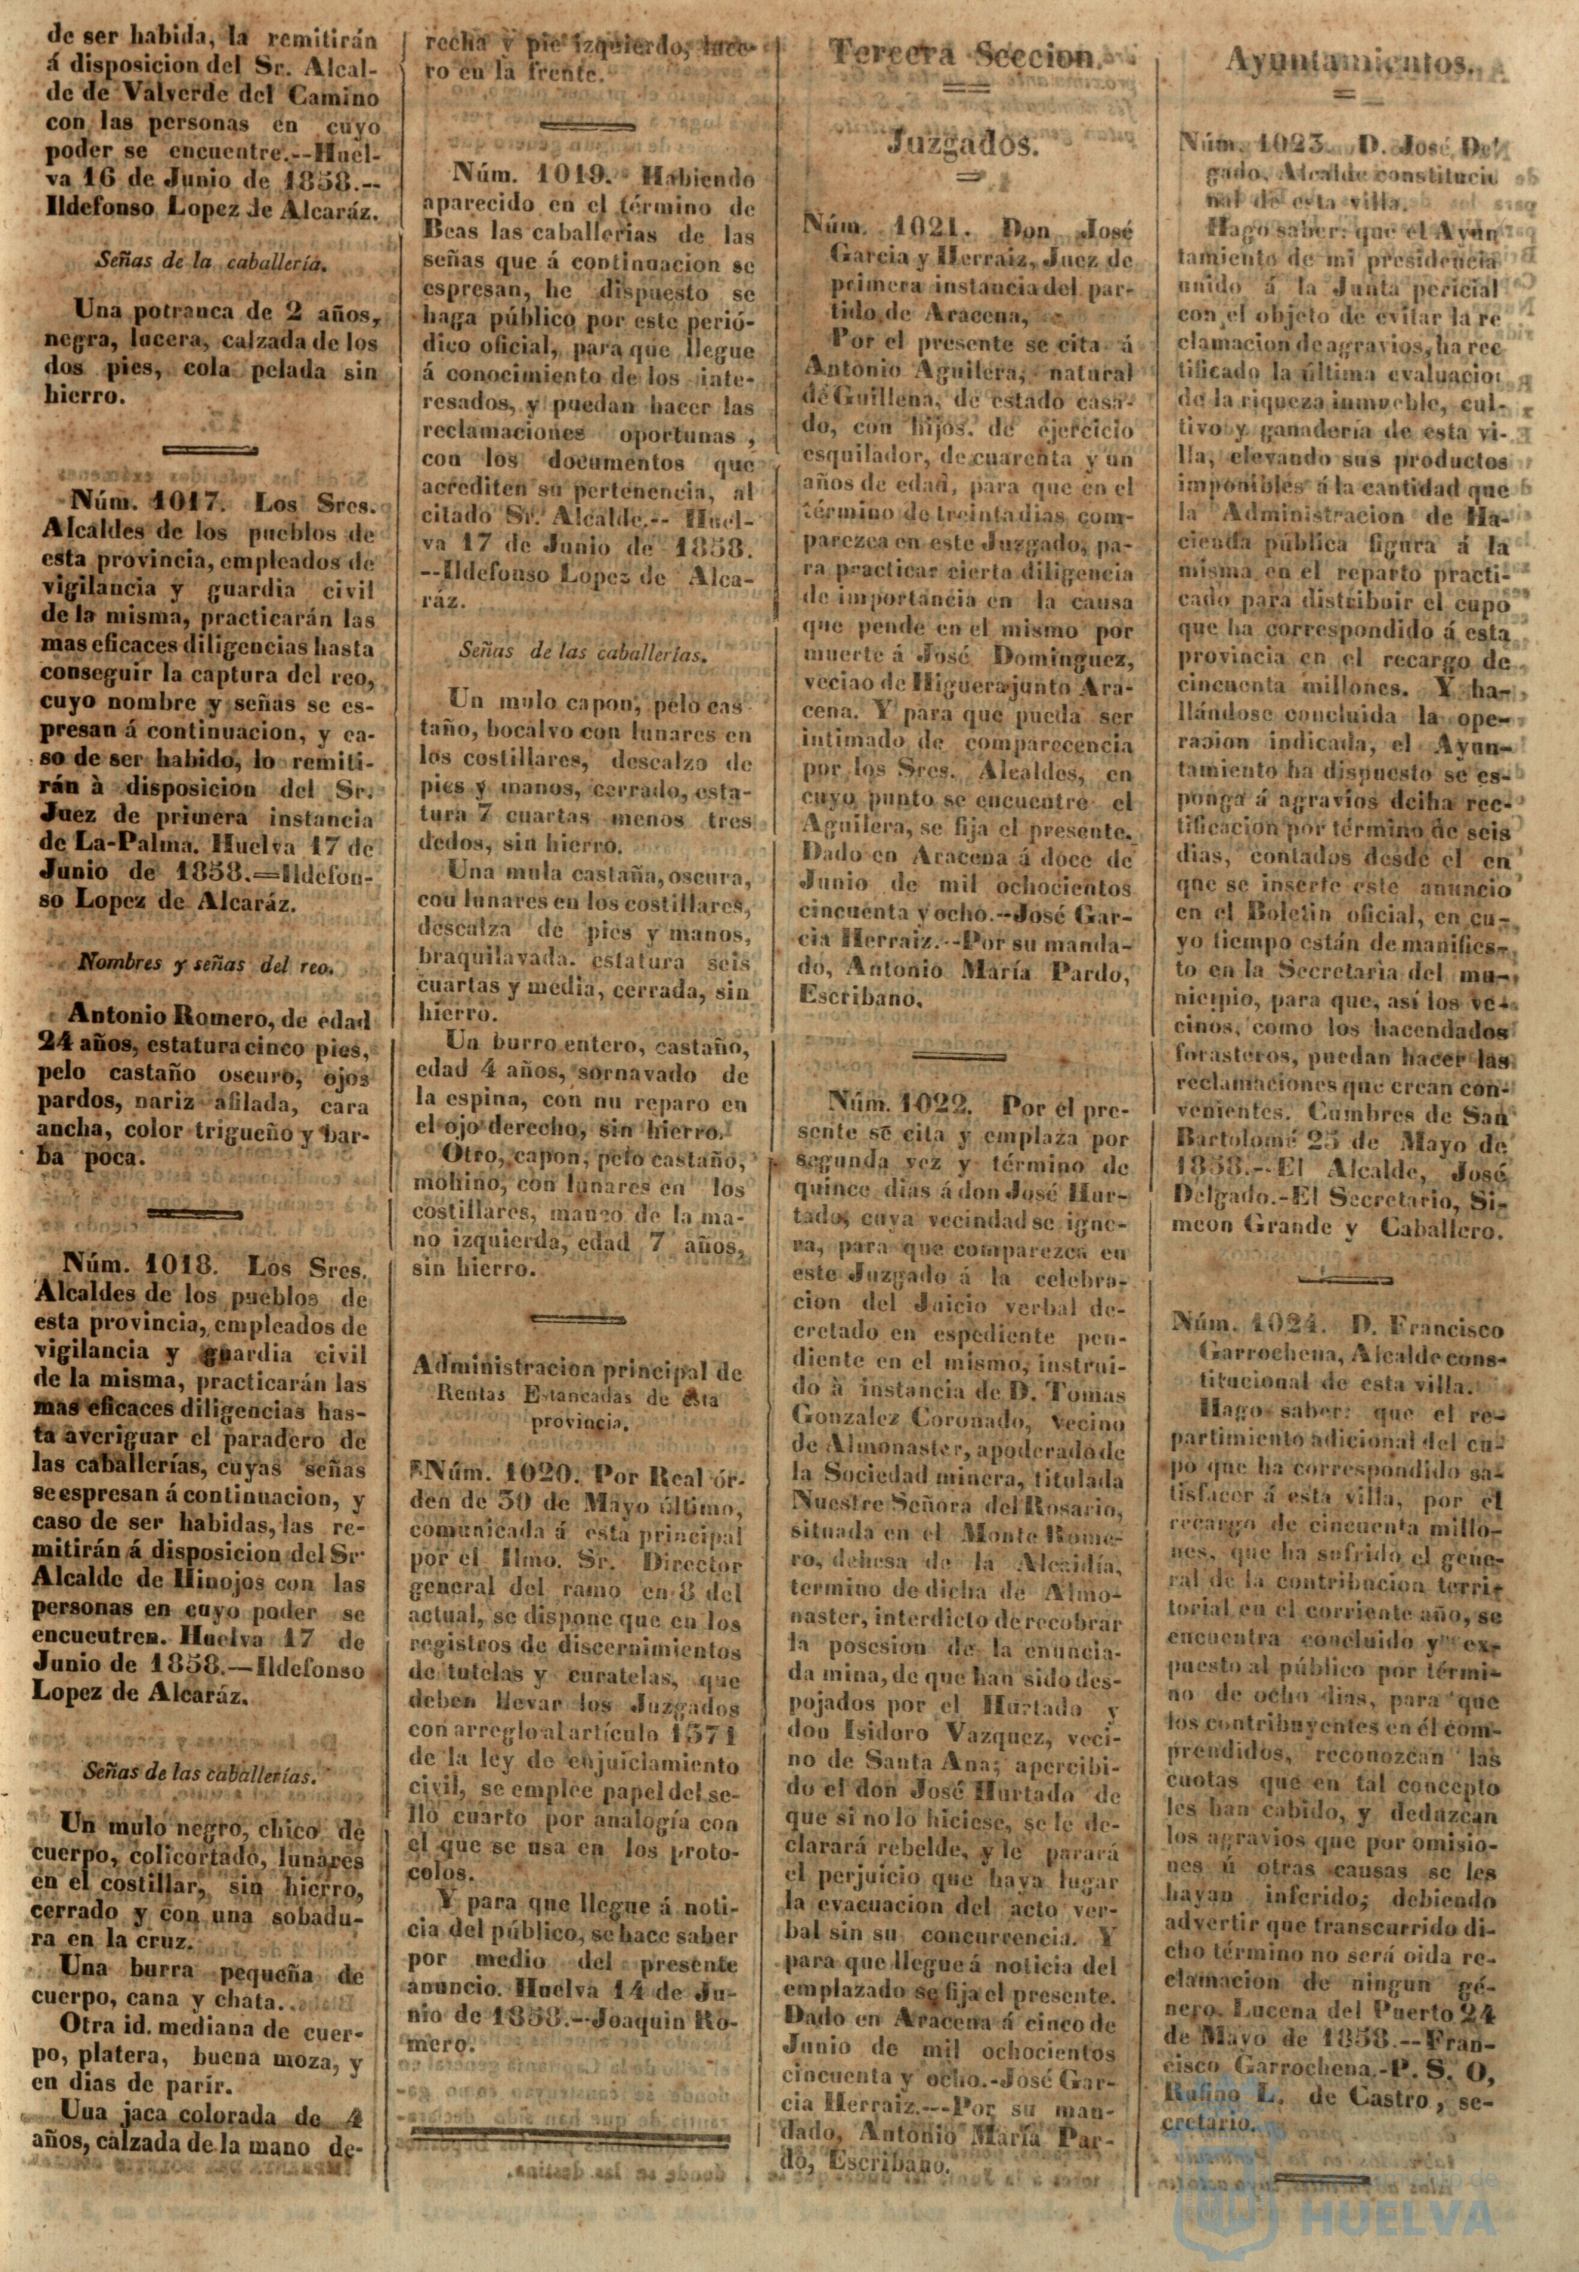 de ser habida, la remitirán
á disposicion del Sr. Alcal-
de de Valverde del Camino
con las personas en cuyo
poder se encuentre.--Huel-
va 16 de Junio de 1858.--
Ildefonso Lopez de Alcaráz.
Señas de la caballería.
Una potranca de 2 años,
negra, lucera, calzada de los
dos pies, cola pelada sin
hierro.
Núm. 1017. Los Sres.
Alcaldes de los pueblos de
esta provincia, empleados de
vigilancia y guardia civil
de la misma, practicarán las
mas eficaces diligencias hasta
conseguir la captura del reo,
cuyo nombre y señas se es-
presan á continuacion, y ca-
so de ser habido, lo remiti-
rán à disposicion del Sr.
Juez de primera instancia
de La-Palma. Huelva 17 de
Junio de 1858.=Ildefon-
so Lopez de Alcaráz.
Nombres y señas del reo.
Antonio Romero, de edad
24 años, estatura cinco pies,
pelo castaño oscuro, ojos
pardos, nariz afilada, cara
ancha, color trigueño y bar-
ba poca.
Núm. 1018. Los Sres.
Alcaldes de los pueblos de
esta provincia, empleados de
vigilancia y guardia civil
de la misma, practicarán las
mas eficaces diligencias has-
ta averiguar el paradero de
las caballerías, cuyas señas
se espresan á continuacion, y
caso de ser habidas, las re-
mitirán á disposicion del Sr
Alcalde de Hinojos con las
personas en cuyo poder se
encuentren. Huelva 17 de
Junio de 1858.—Ildefonso
Lopez de Alcaráz.
Señas de las caballerías.
Un mulo negro, chico de
cuerpo, colicortado, lunares
en el costillar, sin hierro,
cerrado y con una sobadu-
ra en la cruz.
Una burra pequeña de
cuerpo, cana y chata.
Otra id. mediana de cuer-
po, platera, buena moza, y
en dias de parir.
Una jaca colorada de 4
años, calzada de la mano de-
recha y pie izquierdo, luce-
ro en la frente.
Núm. 1019. Habiendo
aparecido en el término de
Beas las caballerias de las
señas que á continuacion se
espresan, he dispuesto se
haga público por este perió-
dico oficial, para que llegue
á conocimiento de los inte-
resados, y puedan hacer las
reclamaciones oportunas,
con los documentos que
acrediten su pertenencia, al
citado Sr. Alcalde.-- Huel-
va 17 de Junio de 1858.
--Ildefonso Lopez de Alca-
ráz.
Señas de las caballerías.
Un mulo capon, pelo cas
taño, bocalvo con lunares en
los costillares, descalzo de
pies y manos, cerrado, esta-
tura 7 cuartas menos tres
dedos, sin hierro.
Una mula castaña, oscura,
con lunares en los costillares,
descalza de pies y manos,
braquilavada. estatura seis
cuartas y media, cerrada, sin
hierro.
Un burro entero, castaño,
edad 4 años, sornavado de
la espina, con nu reparo en
el ojo derecho, sin hierro.
Otro, capon, pelo castaño,
mohino, con lunares en los
costillares, manco de la ma-
no izquierda, edad 7 años,
sin hierro.
Administracion principal de
Rentas Estancadas de esta
provincia.
Núm. 1020. Por Real ór-
den de 30 de Mayo último,
comunicada á esta principal
por el Ilmo. Sr. Director
general del ramo en 8 del
actual, se dispone que en los
registros de discernimientos
de tutelas y curatelas, que
deben llevar los Juzgados
con arreglo al artículo 1371
de la ley de enjuiciamiento
civil, se emplée papel del se-
llo cuarto por analogía con
el que se usa en los proto-
colos.
Y para que llegue á noti-
cia del público, se hace saber
por medio del presente
anuncio. Huelva 14 de Ju-
nio de 1858.--Joaquin Ro-
mero.
Tercera Seccion.
Juzgados.
Núm. 1021. Don José
Garcia y Herraiz, Juez de
primera instancia del par-
tido de Aracena,
Por el presente se cita á
Antonio Aguilera, natural
de Guillena, de estado casa-
do, con hijos. de ejercicio
esquilador, de cuarenta y un
años de edad, para que en el
término de treinta dias com-
parezca en este Juzgado, pa-
ra practicar cierta diligencia
de importancia en la causa
que pende en el mismo por
muerte á José Dominguez,
veciao de Higuera junto Ara-
cena. Y para que pueda ser
intimado de comparecencia
por los Sres. Alcaldes, en
cuyo punto se encuentre el
Aguilera, se fija el presente.
Dado en Aracena á doce de
Junio de mil ochocientos
cincuenta y ocho.--José Gar-
cia Herraiz.--Por su manda-
do, Antonio María Pardo,
Escribano.
Núm. 1022. Por el pre-
sente se cita y emplaza por
segunda vez y término de
quince dias á don José Hur-
tado, cuya vecindad se igno-
ra, para que comparezca en
este Juzgado á la celebra-
cion del Juicio verbal de-
cretado en espediente pen-
diente en el mismo, instrui-
do à instancia de D. Tomas
Gonzalez Coronado, vecino
de Almonaster, apoderado de
la Sociedad minera, titulada
Nuestre Señora del Rosario,
situada en el Monte Rome-
ro, dehesa de la Alcaidía,
termino de dicha de Almo-
naster, interdicto de recobrar
la posesion de la enuncia-
da mina, de que han sido des-
pojados por el Hurtado y
don Isidoro Vazquez, veci-
no de Santa Ana; apercibi-
do el don José Hurtado de
que si no lo hiciese, se le de-
clarará rebelde, y le parará
el perjuicio que haya lugar
la evacuacion del acto ver-
bal sin su concurrencia. Y
para que llegue á noticia del
emplazado se fija el presente.
Dado en Aracena á cinco de
Junio de mil ochocientos
cincuenta y ocho.-José Gar-
cia Herraiz.---Por su man-
dado, Antonio María Par-
do, Escribano.
Ayuntamientos.
Núm. 1023. D. José Del
gado, Alcalde constitucio
nal de esta villa.
Hago saber: que el Ayun
tamiento de mi presidencia
unido á la Junta pericial
con el objeto de evitar la re
clamacion de agravios, ha rec
tificado la última evaluacion
de la riqueza inmueble, cul-
tivo y ganadería de esta vi-
lla, elevando sus productos
imponibles á la cantidad que
la Administracion de Ha-
cienda pública figura á la
misma en el reparto practi-
cado para distribuir el cupo
que ha correspondido á esta
provincia en el recargo de
cincuenta millones. Y ha-
llándose concluida la ope-
rasion indicada, el Ayun-
tamiento ha dispuesto se es-
ponga á agravios deiha rec-
tificacion por término de seis
dias, contados desde el en
que se inserte este anuncio
en el Boletin oficial, en cu-
yo tiempo están de manifies-
to en la Secretaria del mu-
nicipio, para que, así los ve-
cinos, como los hacendados
forasteros, puedan hacer las
reclamaciones que crean con-
venientes. Cumbres de San
Bartolomé 25 de Mayo de
1858.--El Alcalde, José
Delgado.-El Secretario, Si-
meon Grande y Caballero.
Núm. 1024. D. Francisco
Garrochena, Alcalde cons-
titucional de esta villa.
Hago saber: que el re-
partimiento adicional del cu-
po que ha correspondido sa-
tisfacer á esta villa, por el
recargo de cincuenta millo-
nes, que ha sufrido el gene-
ral de la contribucion terri-
torial en el corriente año, se
encuentra concluido y ex-
puesto al público por térmi-
no de ocho dias, para que
los contribuyentes en él com-
prendidos, reconozcan las
cuotas que en tal concepto
les han cabido, y deduzcan
los agravios que por omisio-
nes ú otras causas se les
hayan inferido; debiendo
advertir que transcurrido di-
cho término no será oida re-
clamacion de ningun gé-
nero. Lucena del Puerto 24
de Mayo de 1858.--Fran-
cisco Garrochena.-P. S. O,
Rufino L. de Castro, se-
cretario.
HUELVA